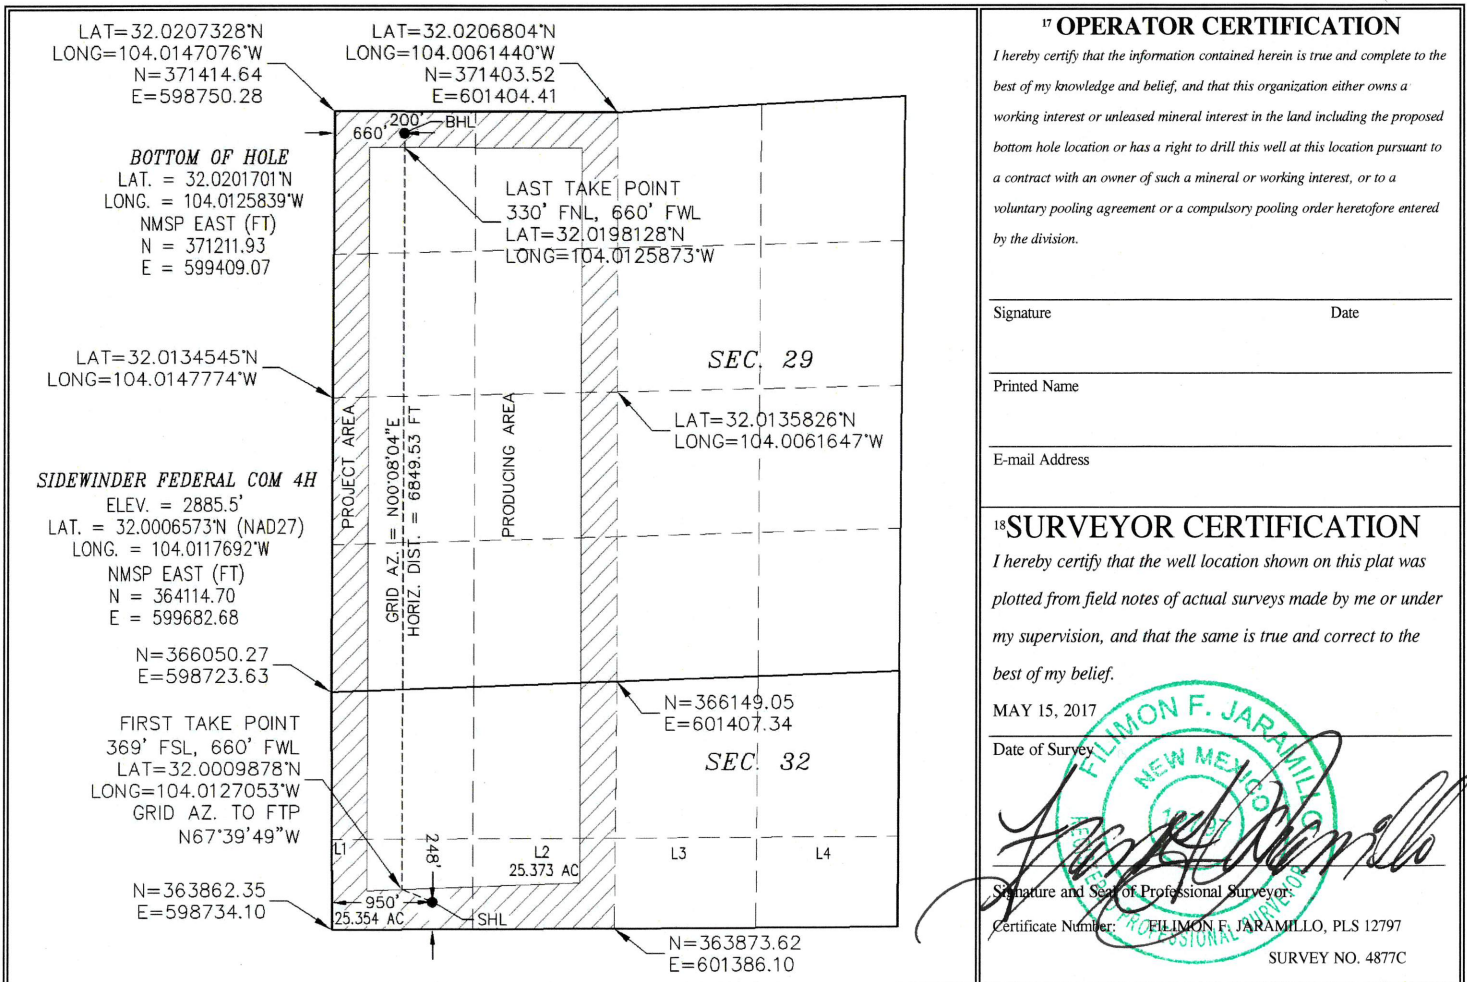 LAT=32.0207328°N
LONG=104.0147076°W
N=371414.64
E=598750.28
LAT=32.0206804°N
LONG=104.0061440°W
N=371403.52
E=601404.41
200'
660'
BHL
BOTTOM OF HOLE
LAT. = 32.0201701°N
LONG. = 104.0125839°W
NMSP EAST (FT)
N = 371211.93
E = 599409.07
LAST TAKE POINT
330' FNL, 660' FWL
LAT=32.0198128°N
LONG=104.0125873°W
LAT=32.0134545°N
LONG=104.0147774°W
SEC. 29
LAT=32.0135826°N
LONG=104.0061647°W
PROJECT AREA
GRID AZ. = N00°08'04"E
HORIZ. DIST. = 6849.53 FT
PRODUCING AREA
SIDEWINDER FEDERAL COM 4H
ELEV. = 2885.5'
LAT. = 32.0006573°N (NAD27)
LONG. = 104.0117692°W
NMSP EAST (FT)
N = 364114.70
E = 599682.68
N=366050.27
E=598723.63
N=366149.05
E=601407.34
FIRST TAKE POINT
369' FSL, 660' FWL
LAT=32.0009878°N
LONG=104.0127053°W
GRID AZ. TO FTP
N67°39'49"W
SEC. 32
L1
248'
L2
25.373 AC
L3
L4
N=363862.35
E=598734.10
950'
25.354 AC
SHL
N=363873.62
E=601386.10
17 OPERATOR CERTIFICATION
I hereby certify that the information contained herein is true and complete to the
best of my knowledge and belief, and that this organization either owns a
working interest or unleased mineral interest in the land including the proposed
bottom hole location or has a right to drill this well at this location pursuant to
a contract with an owner of such a mineral or working interest, or to a
voluntary pooling agreement or a compulsory pooling order heretofore entered
by the division.
Signature Date
Printed Name
E-mail Address
18 SURVEYOR CERTIFICATION
I hereby certify that the well location shown on this plat was
plotted from field notes of actual surveys made by me or under
my supervision, and that the same is true and correct to the
best of my belief.
MAY 15, 2017
Date of Survey
FILIMON F. JARAMILLO
NEW MEXICO
12797
REGISTERED PROFESSIONAL SURVEYOR
Signature and Seal of Professional Surveyor:
Certificate Number: FILIMON F. JARAMILLO, PLS 12797
SURVEY NO. 4877C